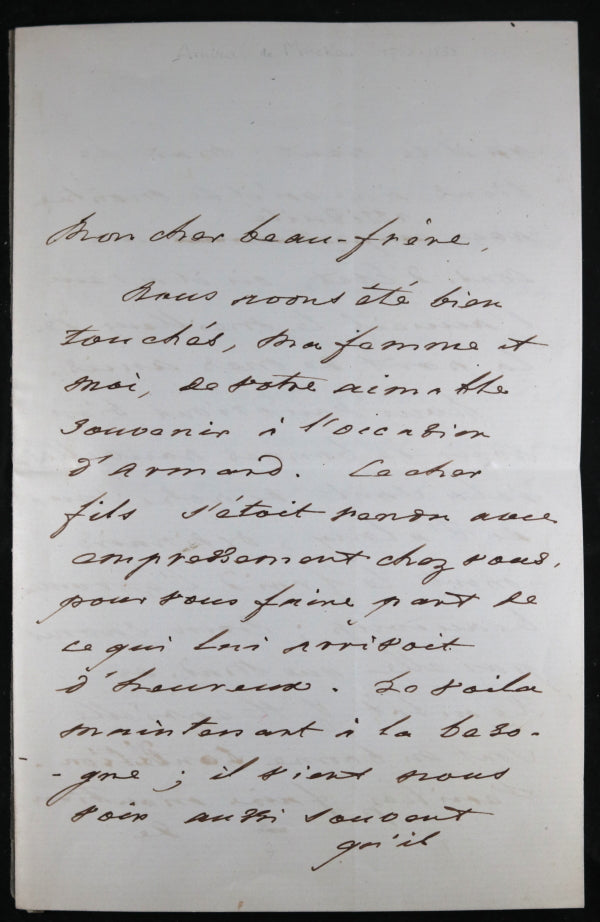 Mon cher beau-frère,
Nous avons été bien
touchés, ma femme et
moi, de votre aimable
souvenir à l'occasion
d'Armand. Ce cher
fils s'étoit rendu avec
empressement chez vous,
pour vous faire part de
ce qui lui arrivoit
d'heureux. Le voila
maintenant à la beso-
-gne; il vient nous
voir aussi souvent
qu'il